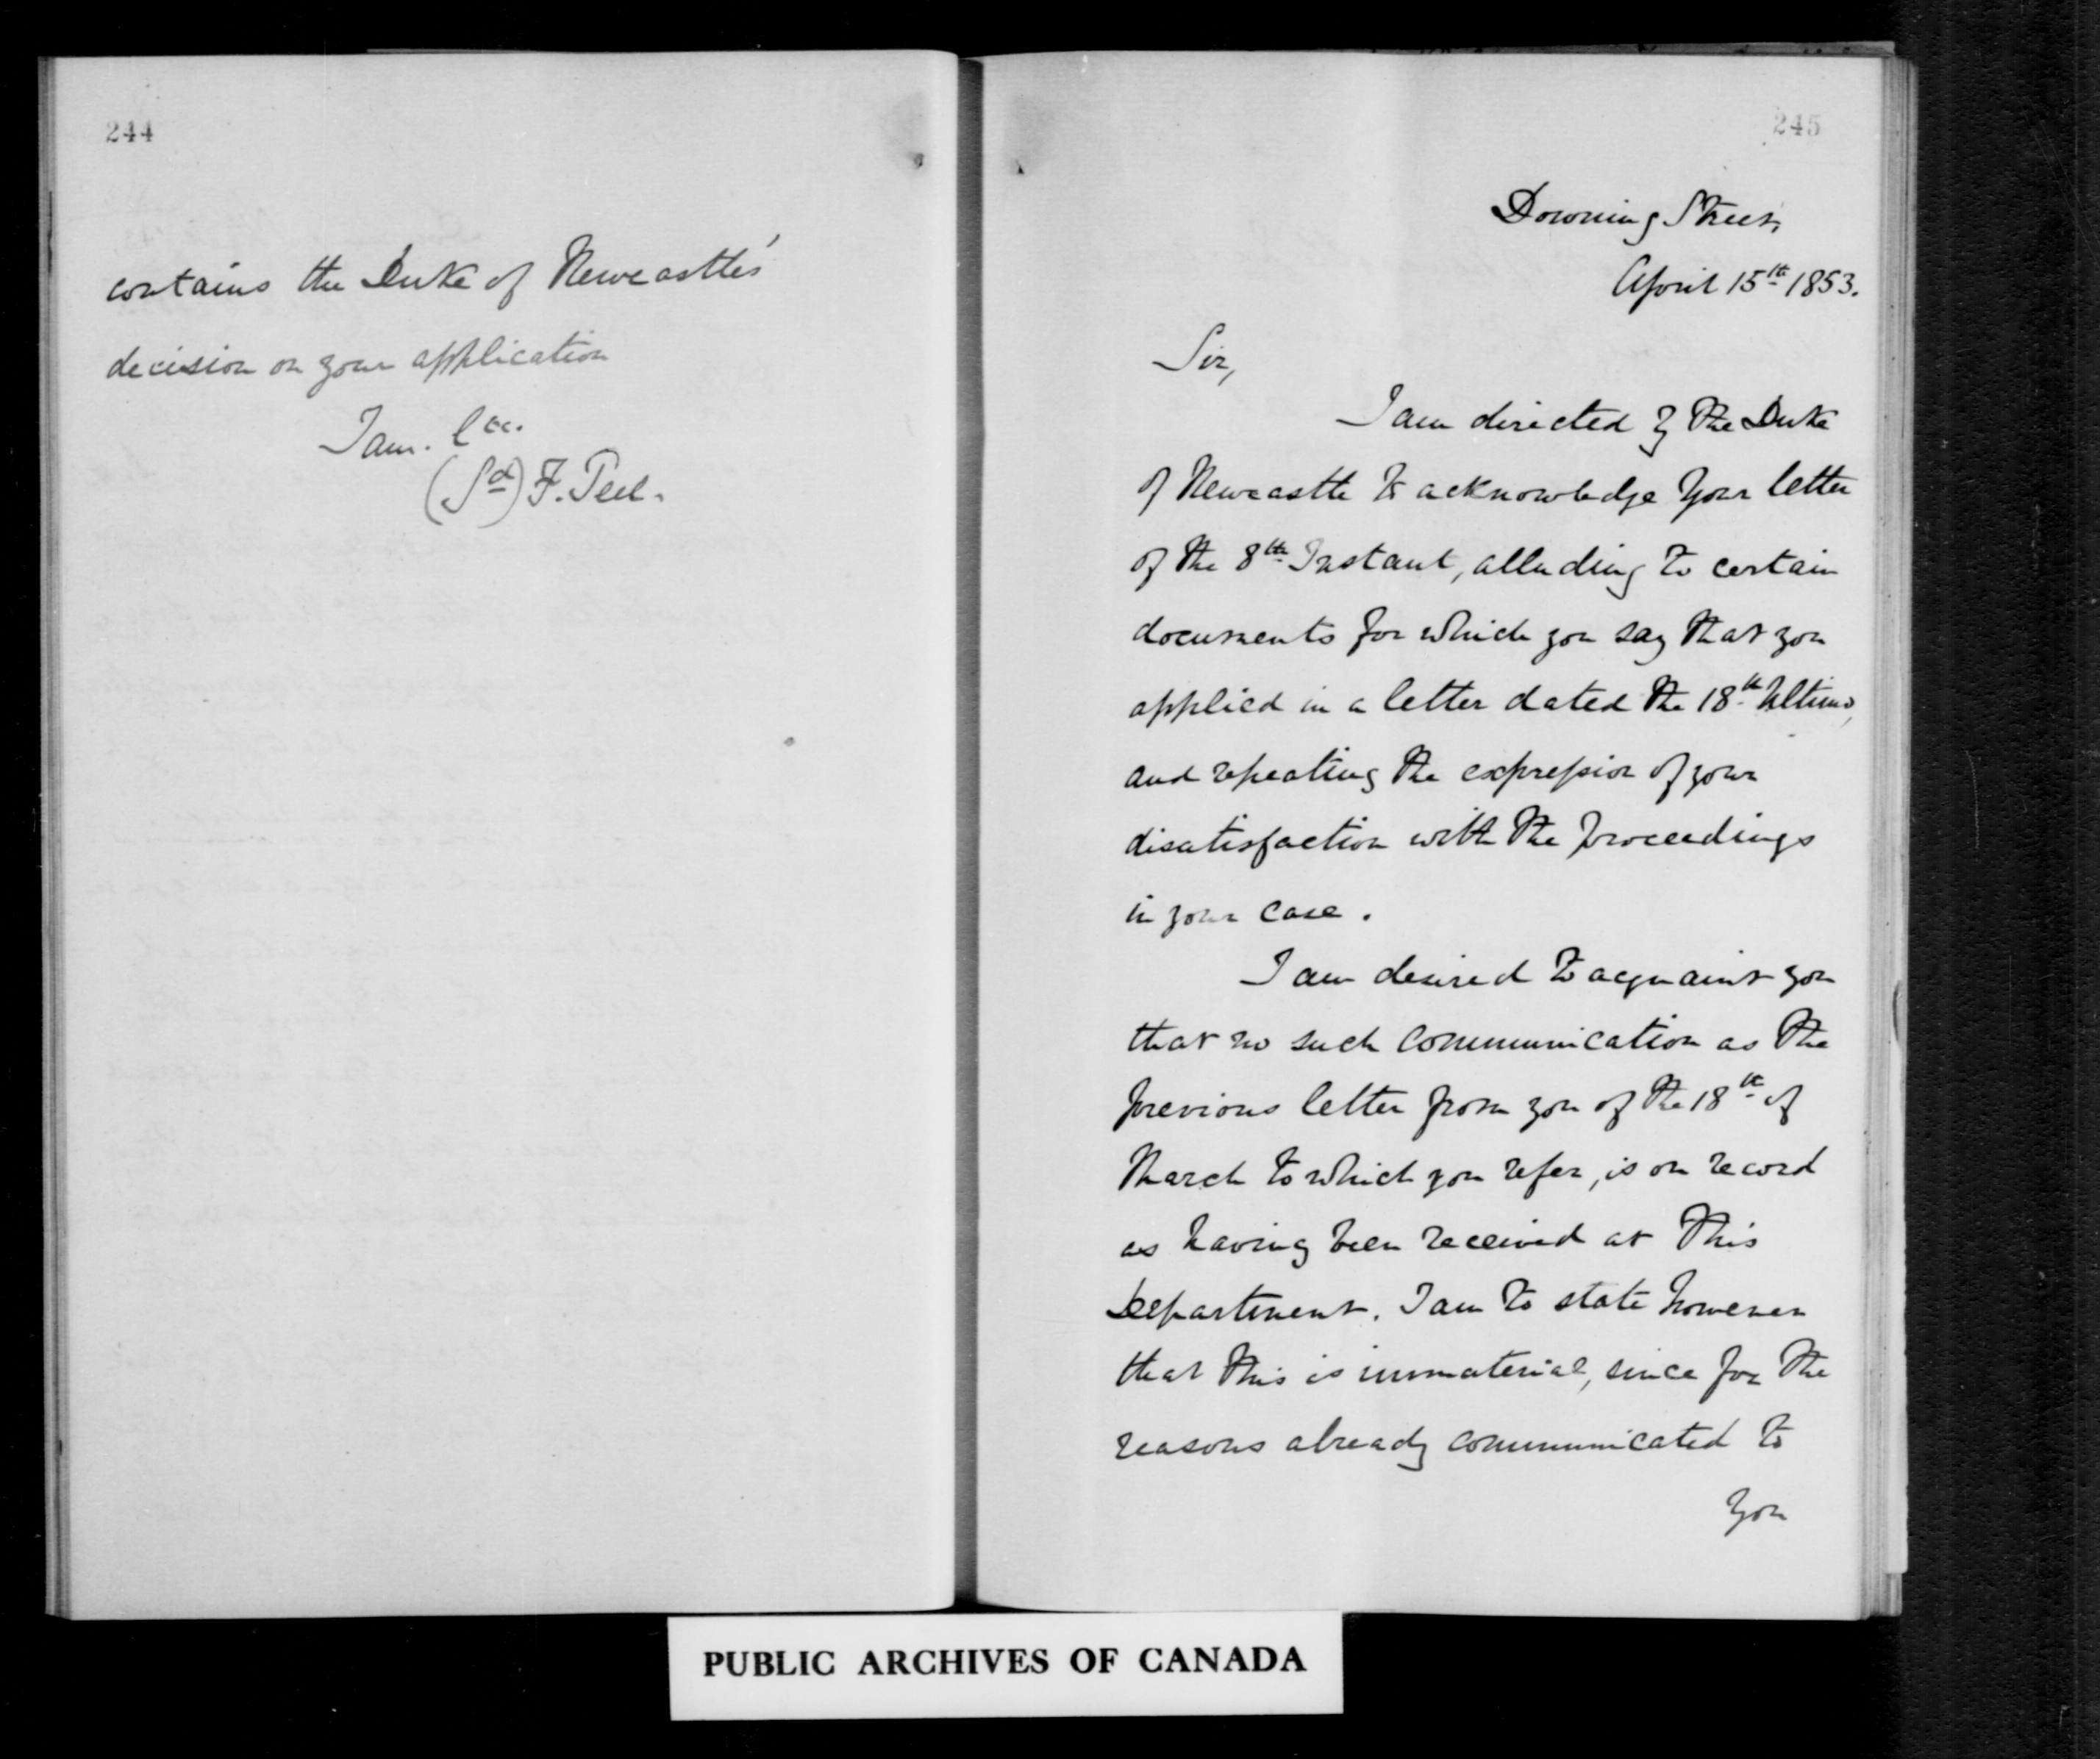 244
contains the Duke of Newcastle's
decision on your application
I am. &c.
(Sd) F. Peel.
245
Downing Street,
April 15th 1853.
Sir,
I am directed by the Duke
of Newcastle to acknowledge your letter
of the 8th Instant, alluding to certain
documents for which you say that you
applied in a letter dated the 18th Ultimo,
and repeating the expression of your
disatisfaction with the proceedings
in your case.
I am desired to acquaint you
that no such communication as the
previous letter from you of the 18th of
March to which you refer, is on record
as having been received at this
Department. I am to state however
that this is immaterial, since for the
reasons already communicated to
you
PUBLIC ARCHIVES OF CANADA